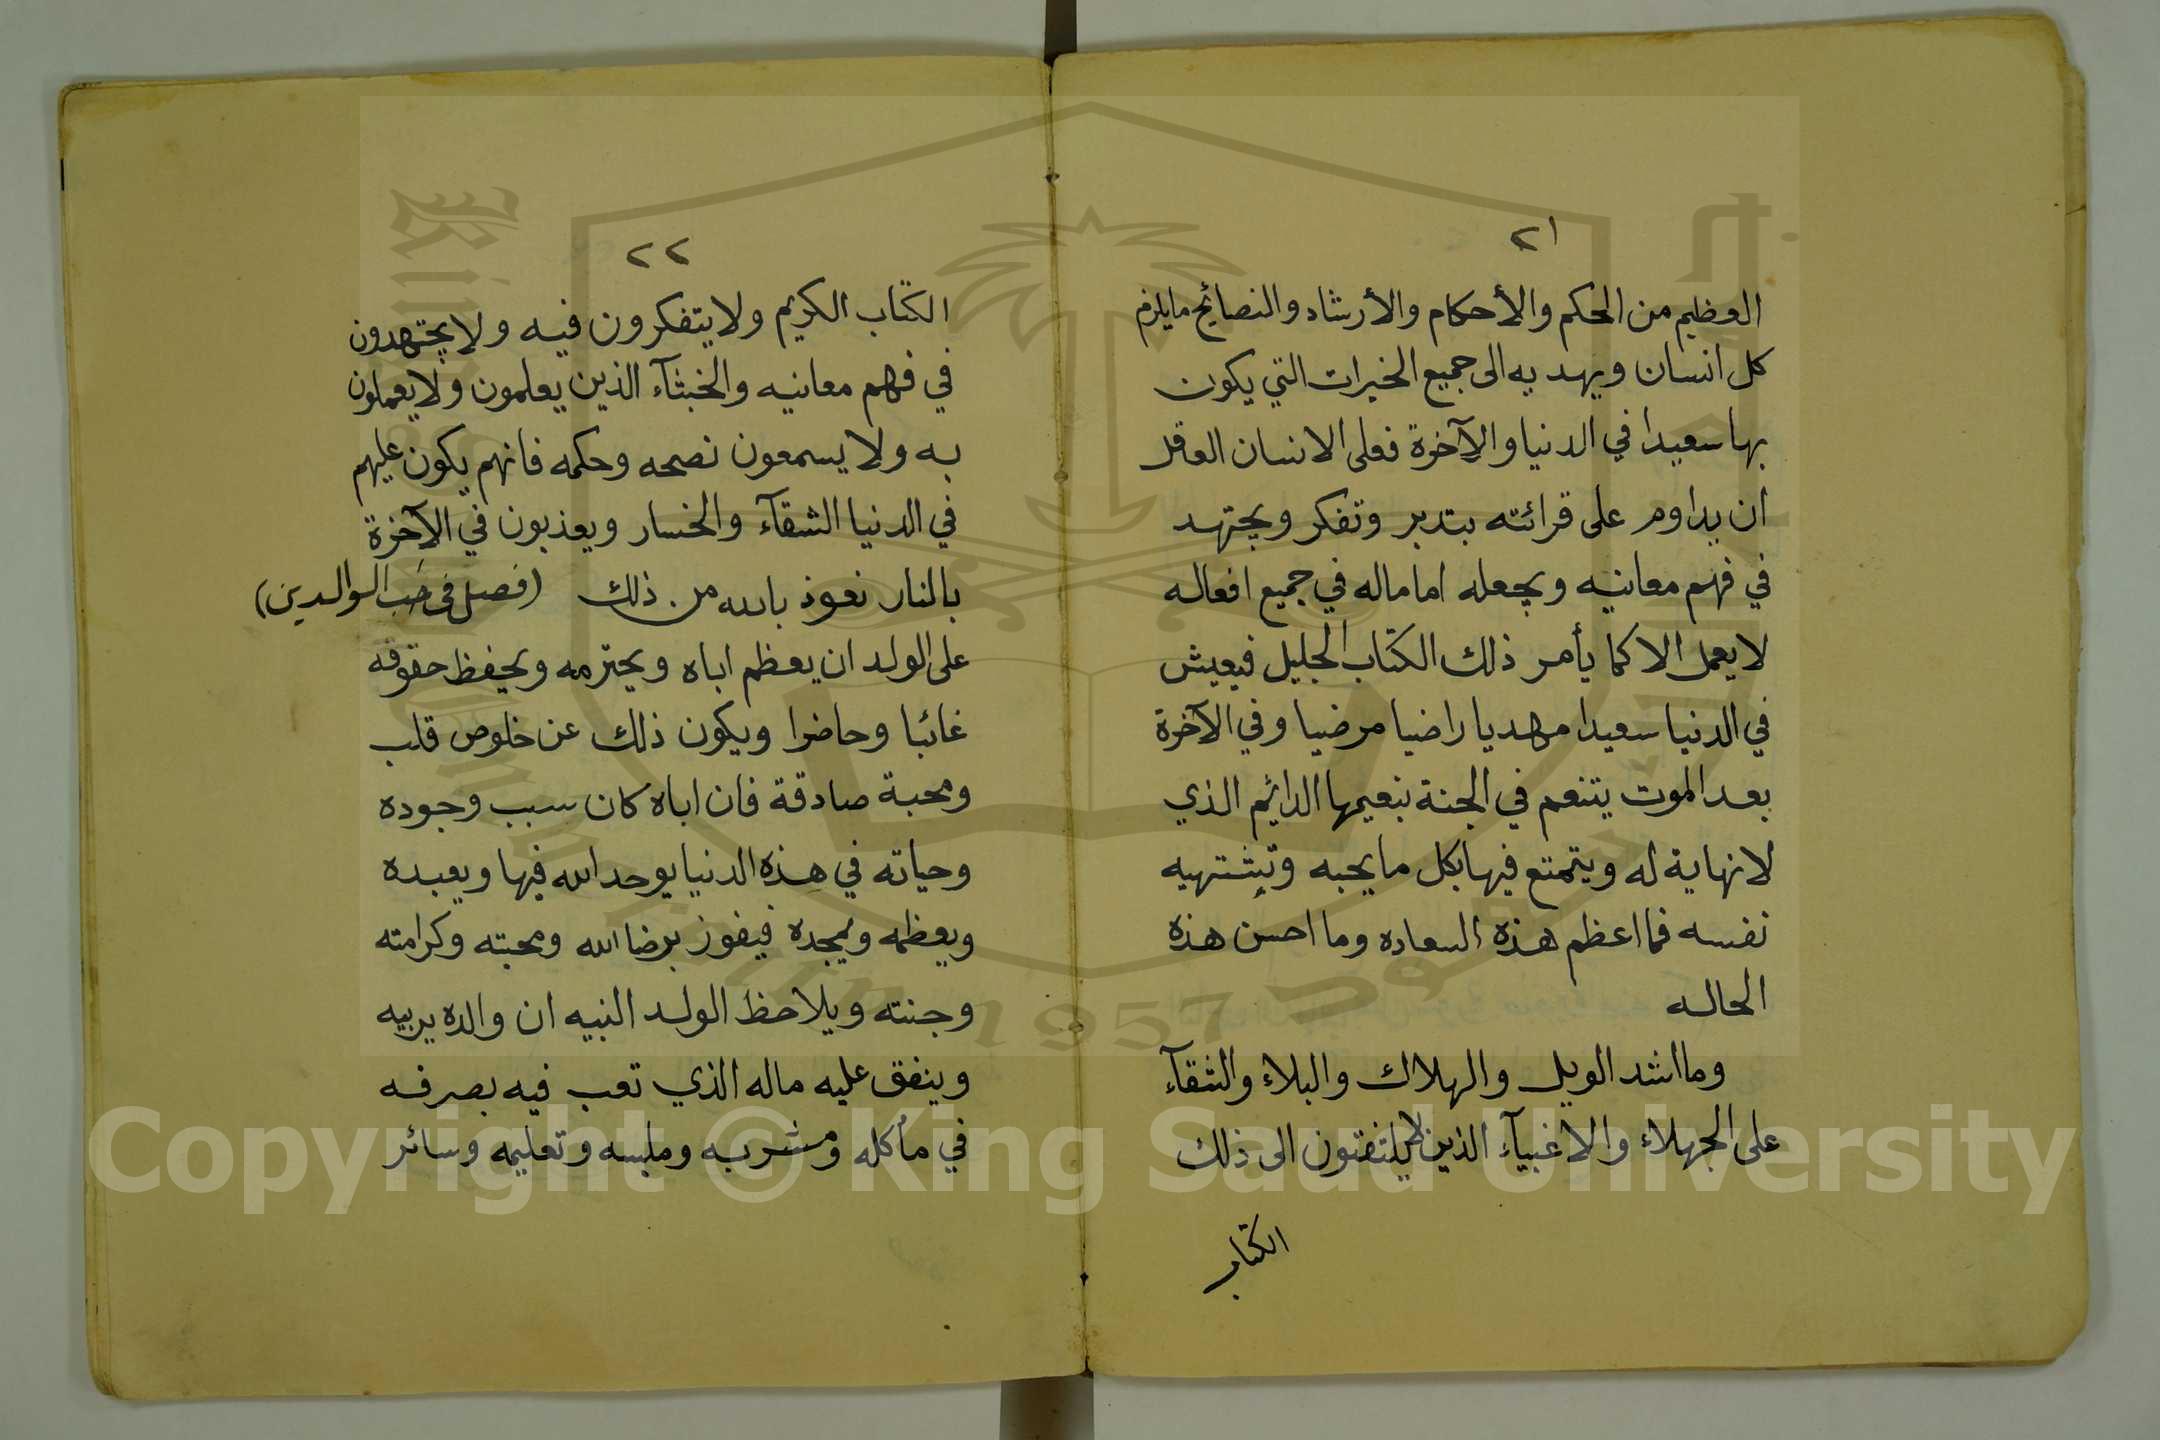 ٢١
العظيم من الحكم والأحكام والأرشاد والنصائح ما يلزم
كل انسان ويهديه الى جميع الخيرات التي يكون
بها سعيدا في الدنيا والآخرة فعلى الانسان العاقل
ان يداوم على قرائته بتدبر وتفكر ويجتهد
في فهم معانيه ويجعله اماما له في جميع افعاله
لا يعمل الا كما يأمر ذلك الكتاب الجليل فيعيش
في الدنيا سعيدا مهديا راضيا مرضيا وفي الآخرة
بعد الموت يتنعم في الجنة بنعيمها الدائم الذي
لا نهاية له ويتمتع فيها بكل ما يحبه وتشتهيه
نفسه فما اعظم هذه السعاده وما احسن هذه
الحاله
وما اشد الويل والهلاك والبلاء والشقآء
على الجهلاء والاغبيآء الذين لا يلتفتون الى ذلك
الكتاب
٢٢
الكتاب الكريم ولا يتفكرون فيه ولا يجتهدون
في فهم معانيه والخبثآء الذين يعلمون ولا يعملون
به ولا يسمعون نصحه وحكمه فانهم يكون عليهم
في الدنيا الشقآء والخسار ويعذبون في الآخرة
بالنار نعوذ بالله من ذلك (فصل في حب الوالدين)
على الولد ان يعظم اباه ويحترمه ويحفظ حقوقه
غائبا وحاضرا ويكون ذلك عن خلوص قلب
ومحبة صادقة فان اباه كان سبب وجوده
وحياته في هذه الدنيا يوحد الله فيها ويعبده
ويعظمه ويمجده فيفوز برضا الله ومحبته وكرامته
وجنته ويلاحظ الولد النبيه ان والده يربيه
وينفق عليه ماله الذي تعب فيه بصرفه
في مأكله ومشربه وملبسه وتعليمه وسائر
Copyright © King Saud University
1957